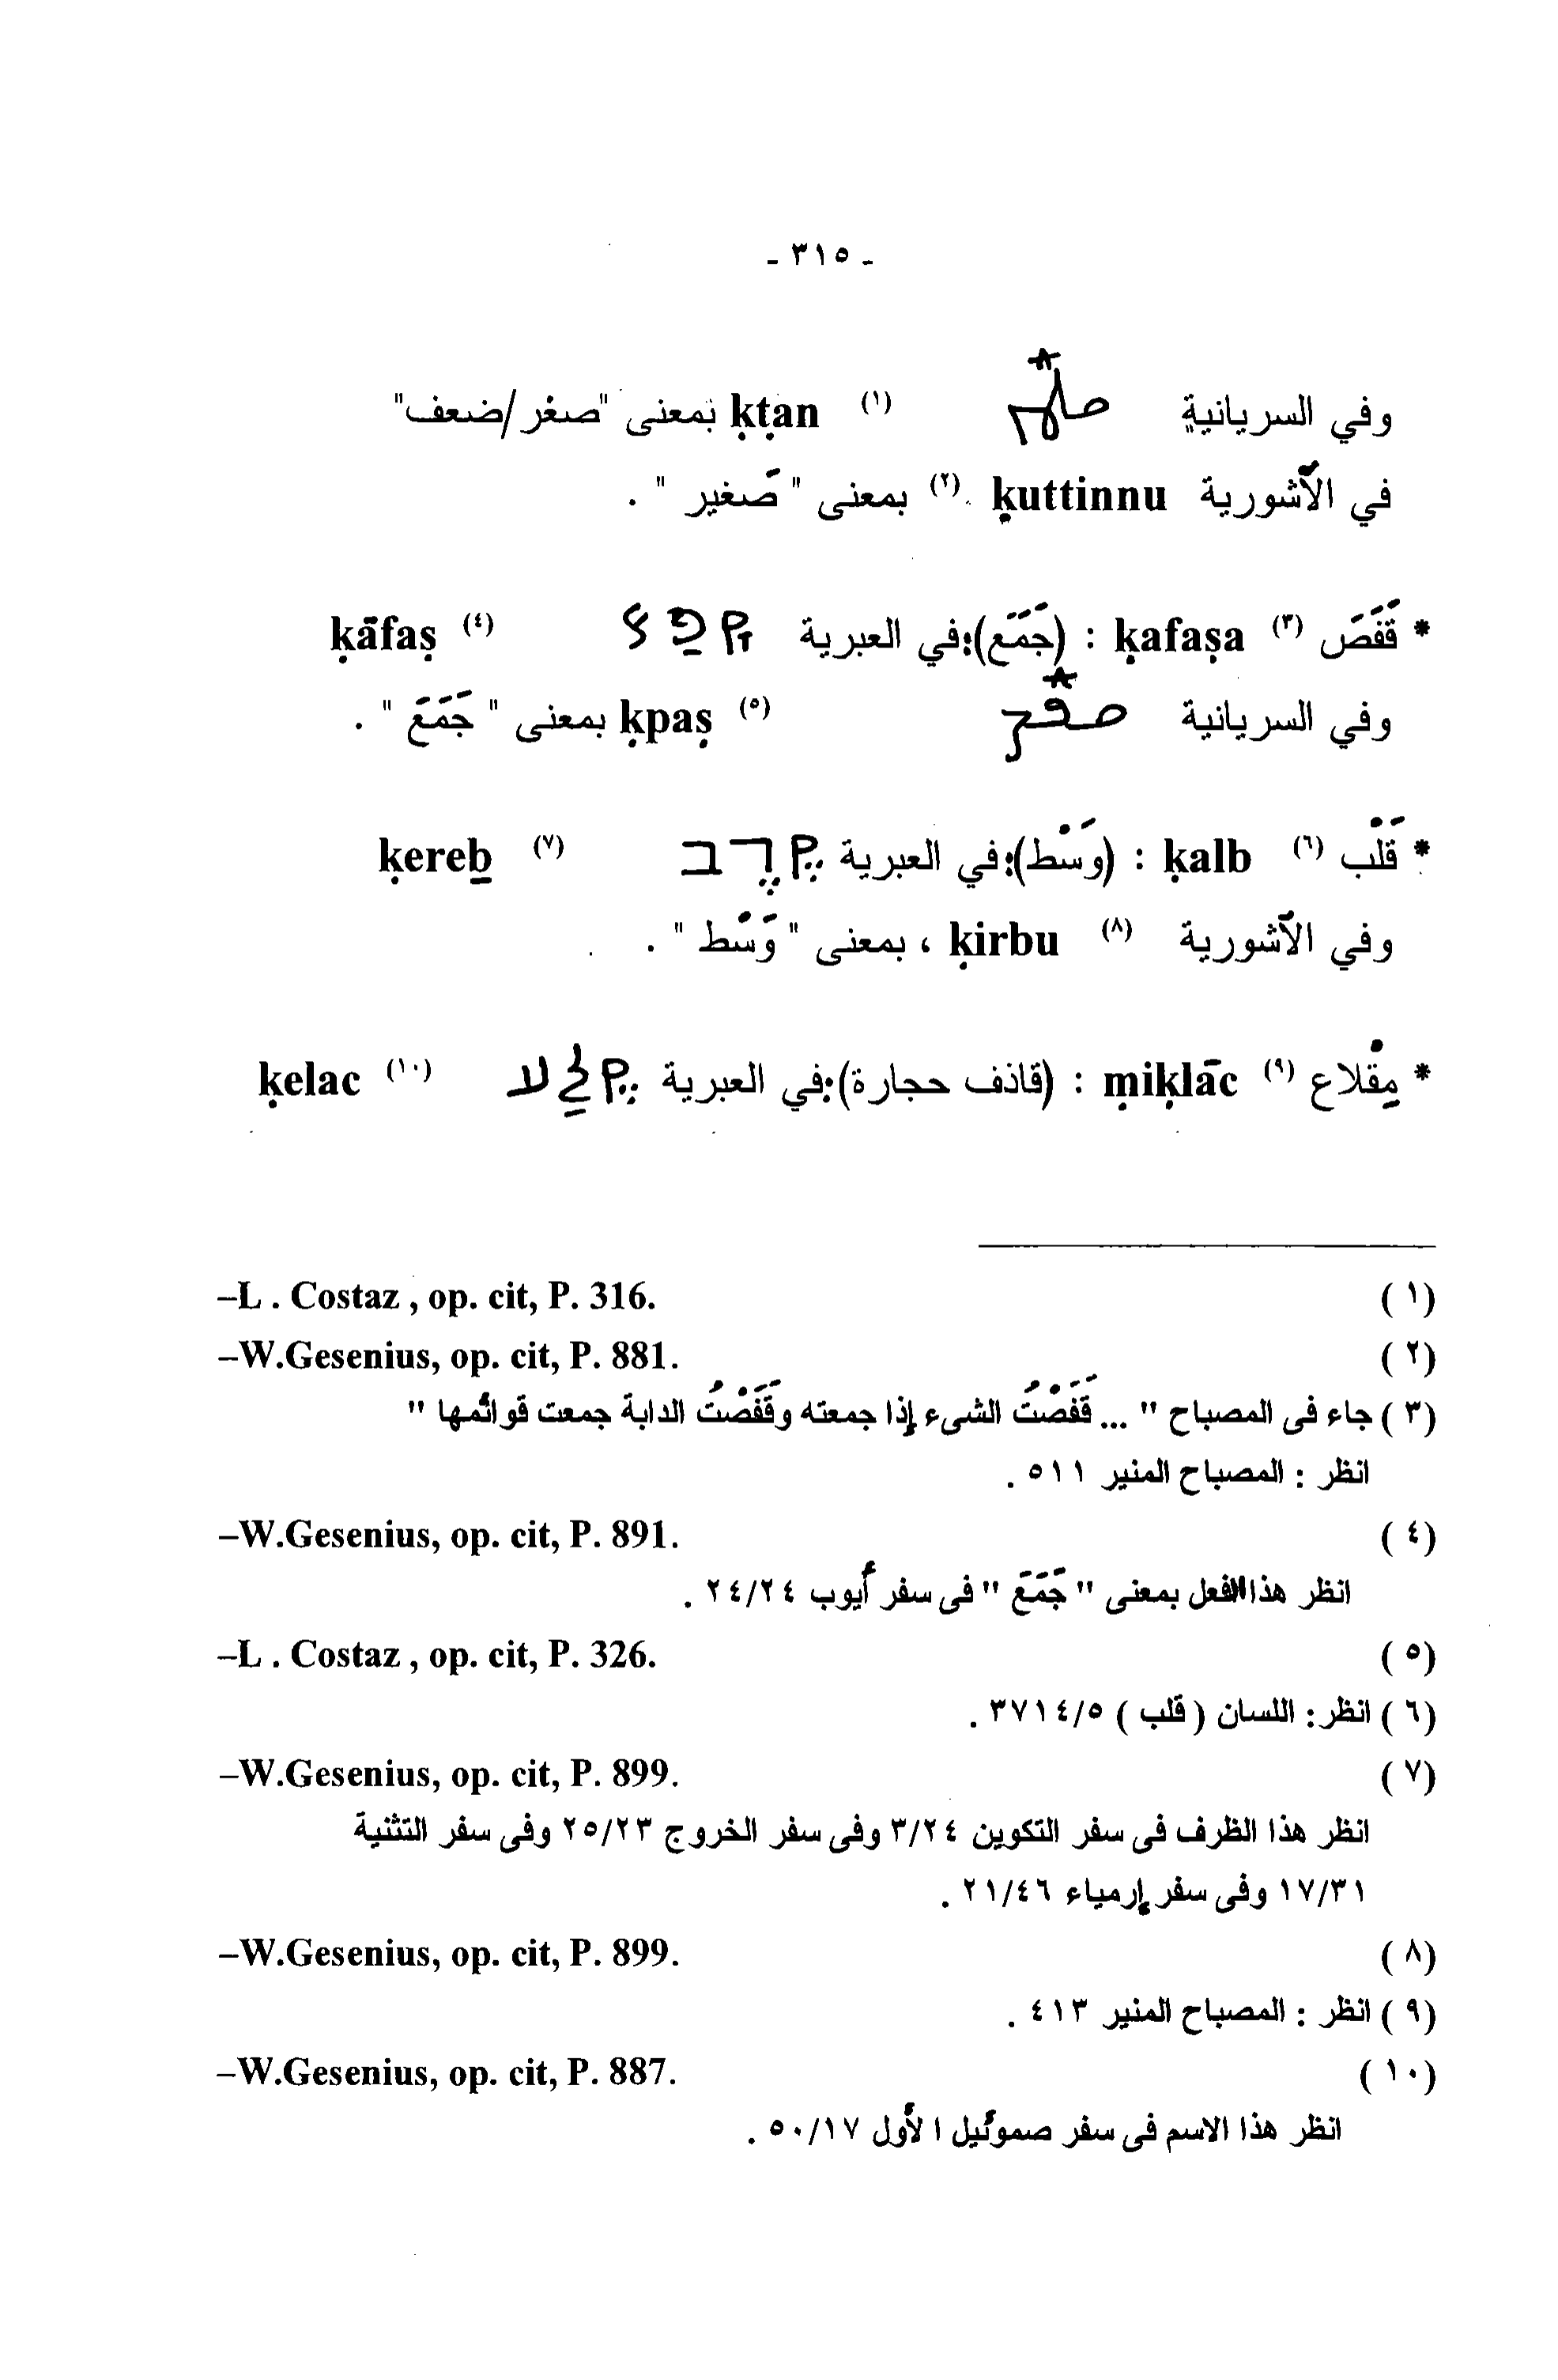 - ٣١٥ -
وفي السريانية ܩܛܢ (١) ḳṭan بمعنى "صغر/ضعف"
في الآشورية ḳuttinnu (٢) بمعنى " صَغير " .
* قَفَصَ (٣) ḳafaṣa : (جَمَعَ)؛في العبرية קפץ (٤) ḳāfaṣ
وفي السريانية ܩܦܨ (٥) ḳpaṣ بمعنى " جَمَعَ " .
* قَلْب (٦) ḳalb : (وَسْط)؛في العبرية קֶרֶב (٧) ḳereḇ
وفي الآشورية (٨) ḳirbu ، بمعنى " وَسْط " .
* مِقْلاع (٩) ṃiḳlāc : (قاذف حجارة)؛في العبرية קֶלַע (١٠) ḳelac
(١) –L . Costaz , op. cit, P. 316.
(٢) –W.Gesenius, op. cit, P. 881.
(٣) جاء فى المصباح " ... قَفَصْتُ الشىء إذا جمعته وقَفَصْتُ الدابة جمعت قوائمها "
انظر : المصباح المنير ٥١١ .
(٤) –W.Gesenius, op. cit, P. 891.
انظر هذا الفعل بمعنى " جَمَعَ " فى سفر أيوب ٢٤/٢٤ .
(٥) –L . Costaz , op. cit, P. 326.
(٦) انظر: اللسان ( قلب ) ٣٧١٤/٥ .
(٧) –W.Gesenius, op. cit, P. 899.
انظر هذا الظرف فى سفر التكوين ٣/٢٤ وفى سفر الخروج ٢٥/٢٣ وفى سفر التثنية
١٧/٣١ وفى سفر إرمياء ٢١/٤٦ .
(٨) –W.Gesenius, op. cit, P. 899.
(٩) انظر : المصباح المنير ٤١٣ .
(١٠) –W.Gesenius, op. cit, P. 887.
انظر هذا الاسم فى سفر صموئيل الأول ٥٠/١٧ .